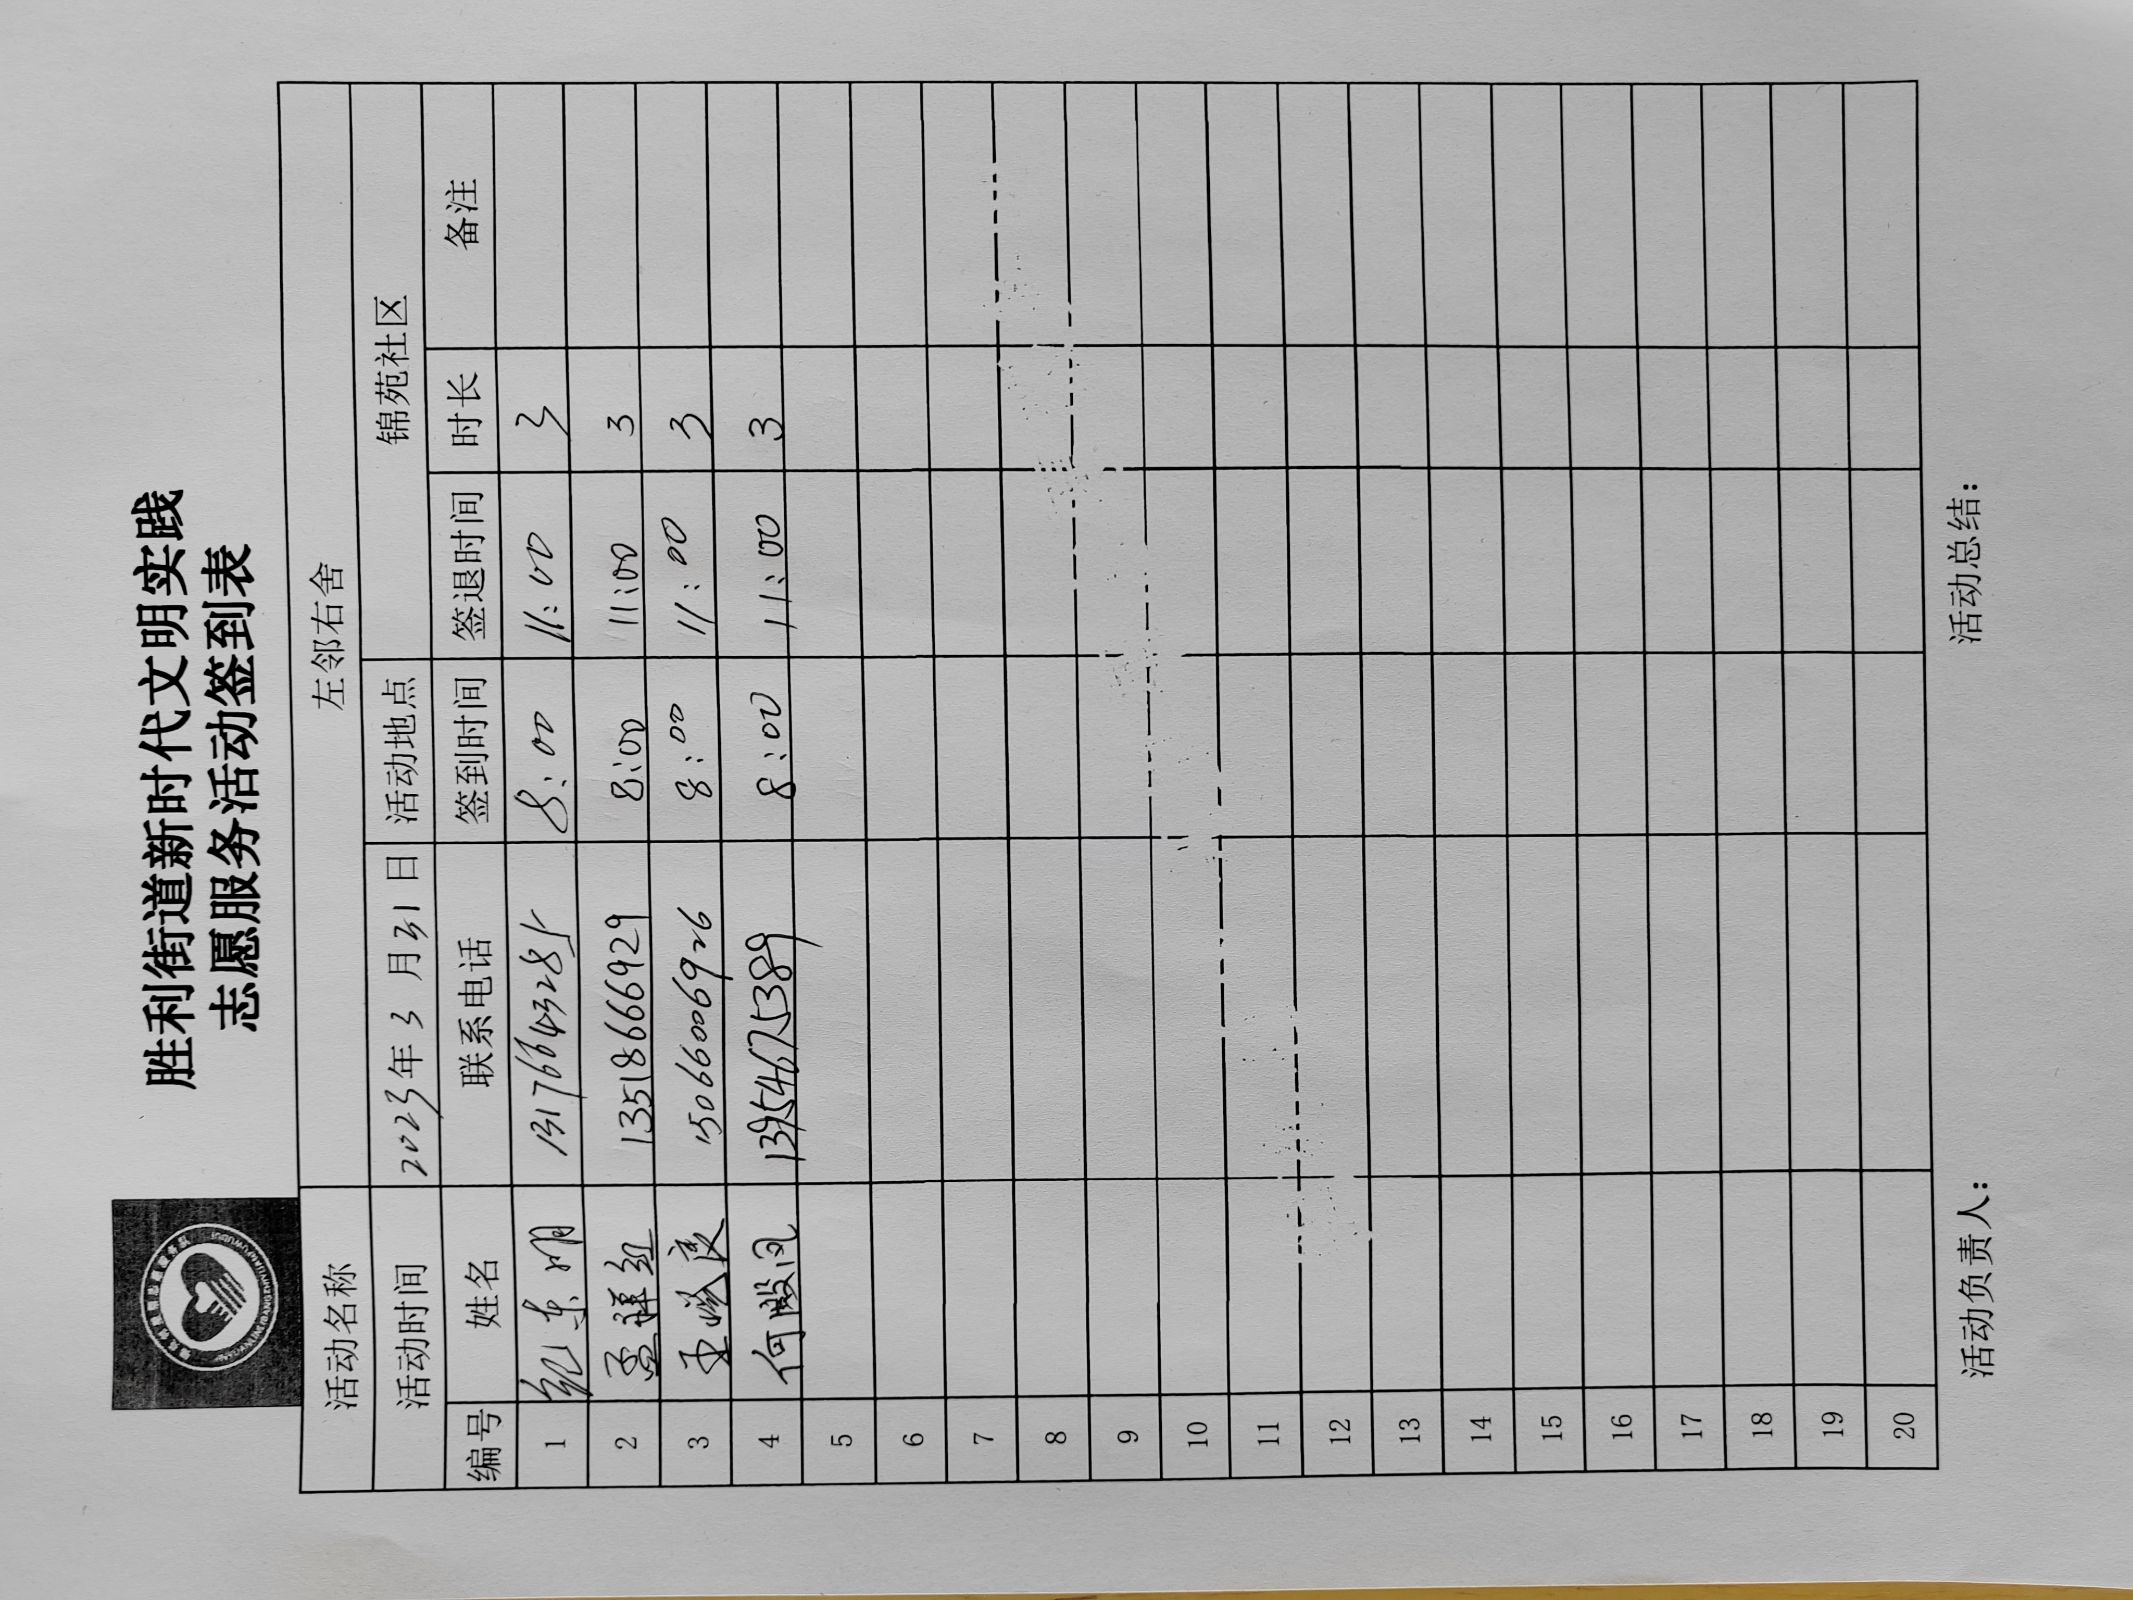 胜利街道新时代文明实践
志愿服务活动签到表
活动名称 左邻右舍
活动时间 2023年 3 月 31 日 活动地点 锦苑社区
编号 姓名 联系电话 签到时间 签退时间 时长 备注
1 13176643285 8:00 11:00 3
2 孟祥红 13518666929 8:00 11:00 3
3 15066006926 8:00 11:00 3
4 何殿凤 13954675389 8:00 11:00 3
5
6
7
8
9
10
11
12
13
14
15
16
17
18
19
20
活动负责人： 活动总结：